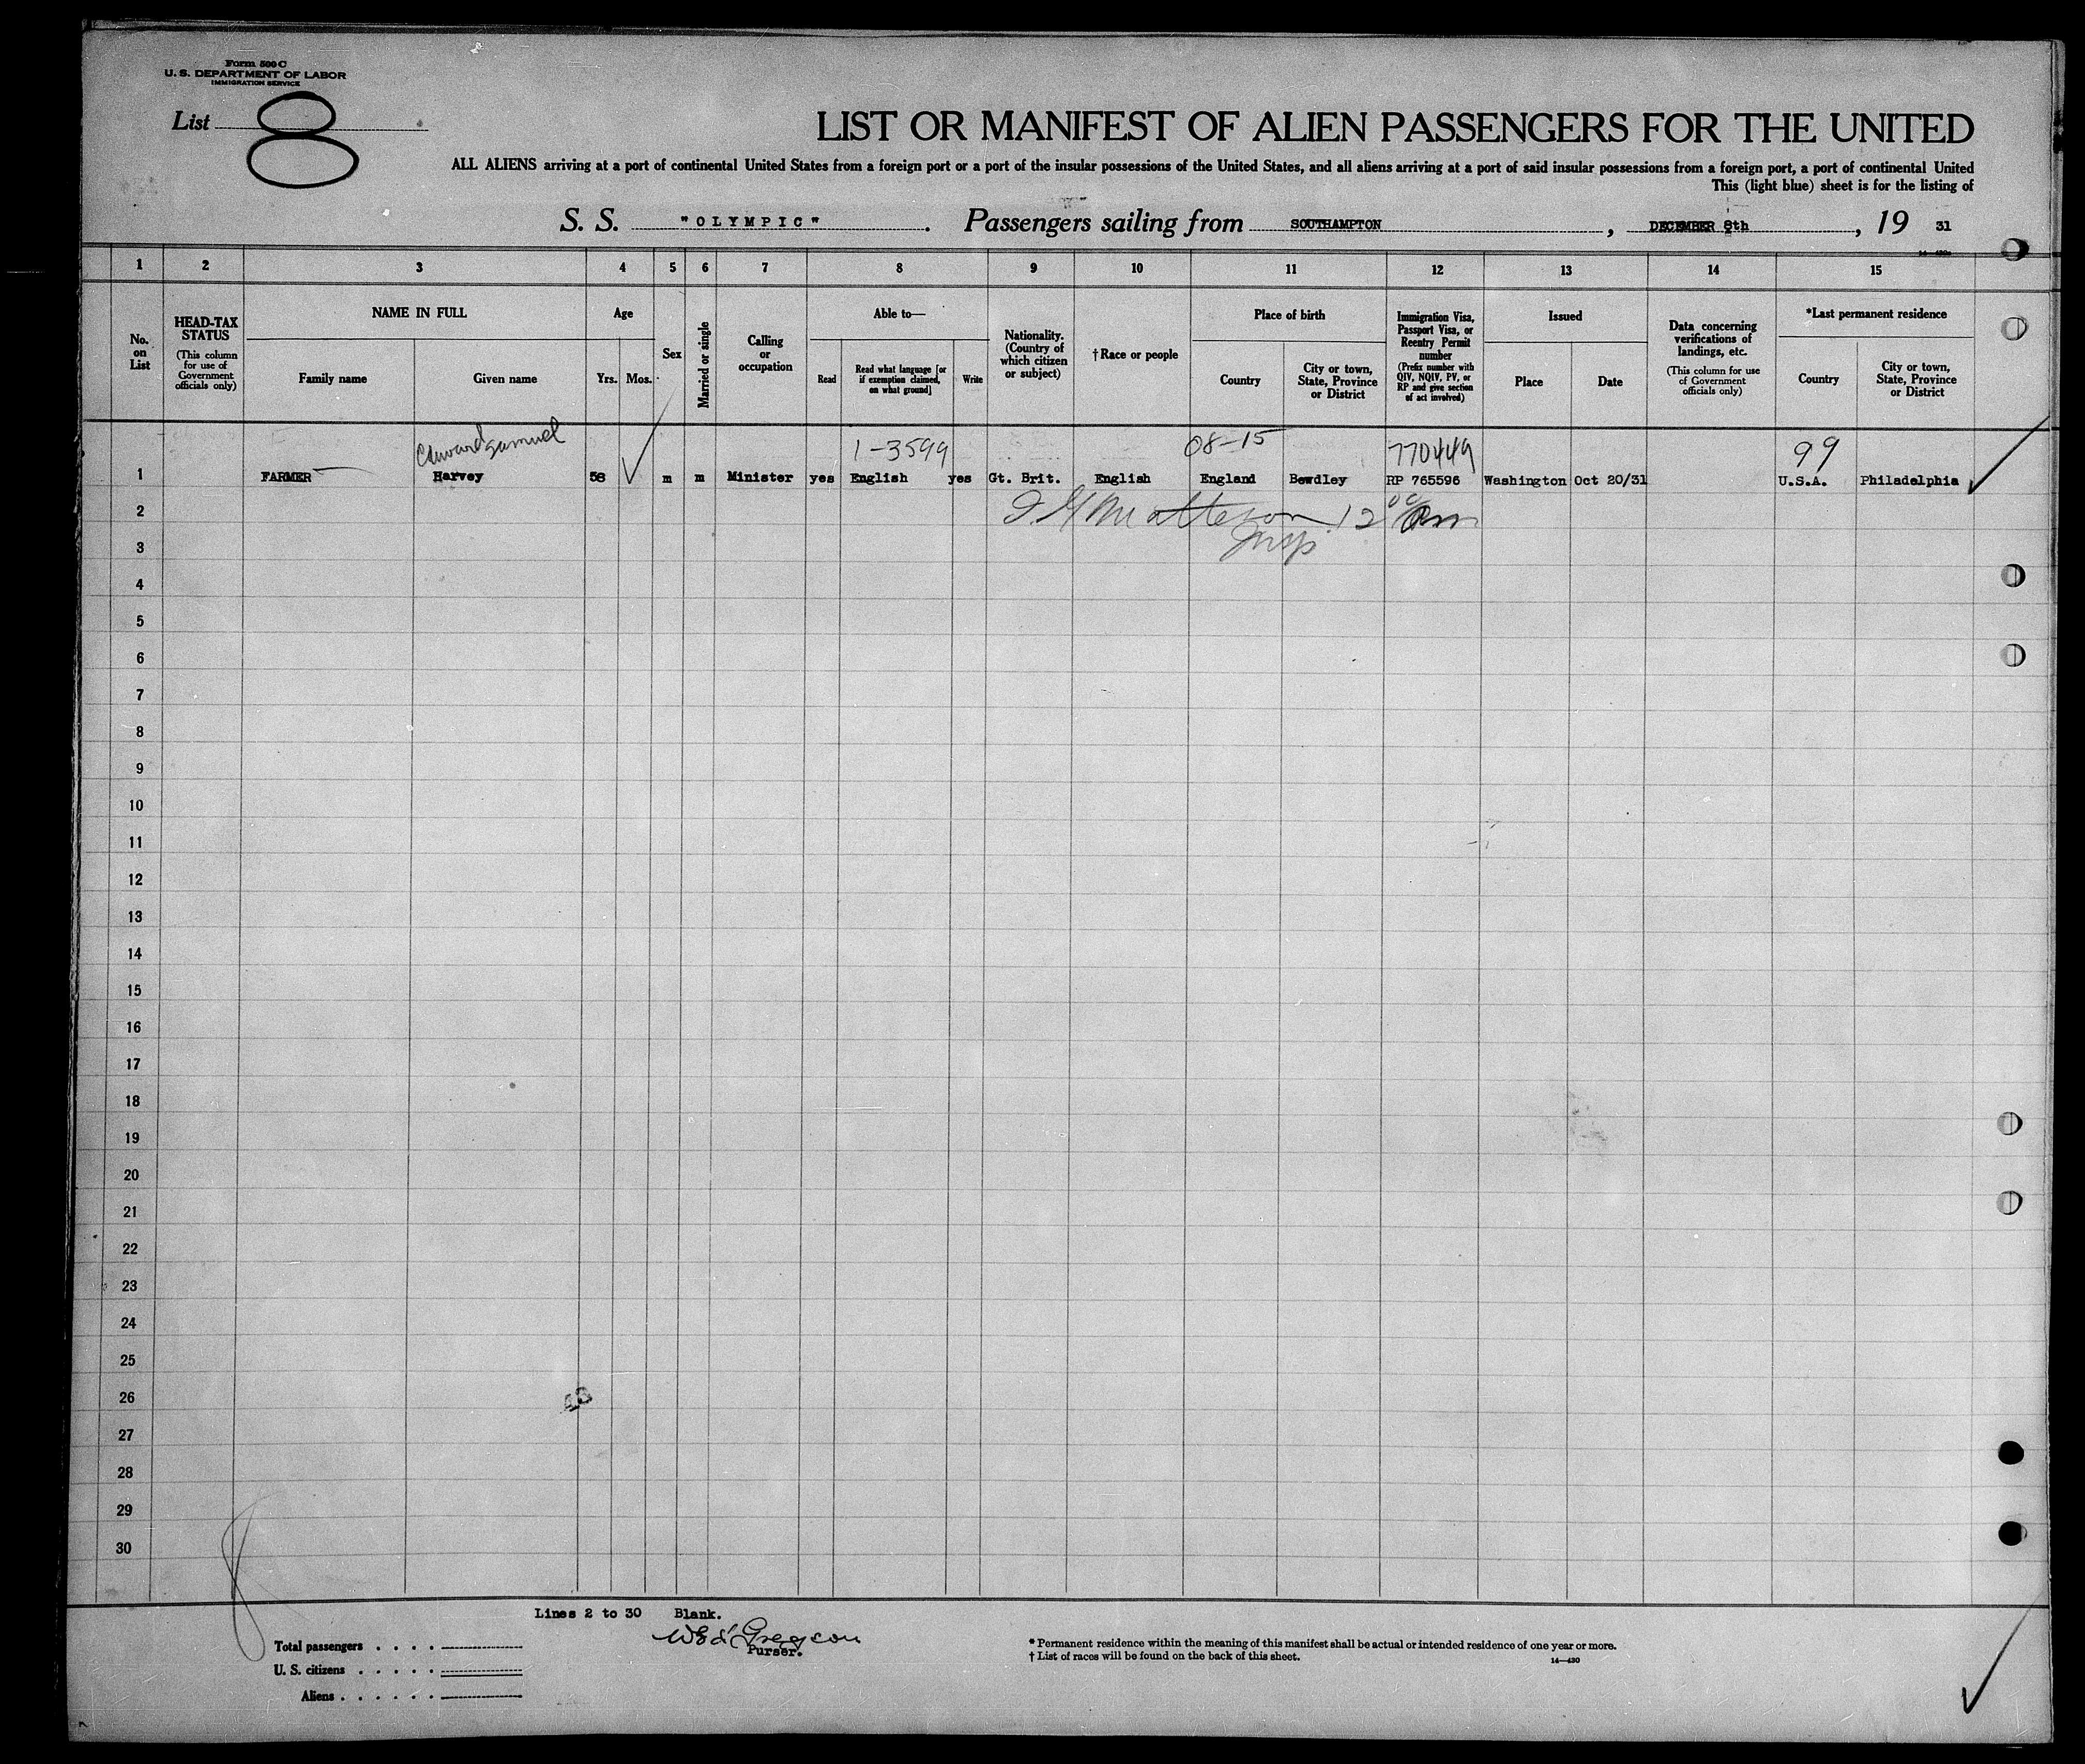 Form 500 C
U. S. DEPARTMENT OF LABOR
IMMIGRATION SERVICE
List 8
LIST OR MANIFEST OF ALIEN PASSENGERS FOR THE UNITED
ALL ALIENS arriving at a port of continental United States from a foreign port or a port of the insular possessions of the United States, and all aliens arriving at a port of said insular possessions from a foreign port, a port of continental United
This (light blue) sheet is for the listing of
S. S. "OLYMPIC". Passengers sailing from SOUTHAMPTON, DECEMBER 8th, 19 31
1 2 3 4 5 6 7 8 9 10 11 12 13 14 15
No. on List
HEAD-TAX STATUS
(This column for use of Government officials only)
NAME IN FULL
Family name
Given name
Age
Yrs. Mos.
Sex
Married or single
Calling or occupation
Able to—
Read
Read what language [or if exemption claimed, on what ground]
Write
Nationality. (Country of which citizen or subject)
†Race or people
Place of birth
Country
City or town, State, Province or District
Immigration Visa, Passport Visa, or Reentry Permit number
(Prefix number with QIV, NQIV, PV, or RP and give section of act involved)
Issued
Place
Date
Data concerning verifications of landings, etc.
(This column for use of Government officials only)
*Last permanent residence
Country
City or town, State, Province or District
Edward Samuel 1-3599 08-15 770449 99
1 FARMER Harvey 58 m m Minister yes English yes Gt. Brit. English England Bewdley RP 765596 Washington Oct 20/31 U.S.A. Philadelphia
2 Matteson 12
3 Insp
4
5
6
7
8
9
10
11
12
13
14
15
16
17
18
19
20
21
22
23
24
25
26
27
28
29
30
Lines 2 to 30 Blank.
Gregson
Purser.
Total passengers
U. S. citizens
Aliens
* Permanent residence within the meaning of this manifest shall be actual or intended residence of one year or more.
† List of races will be found on the back of this sheet.
14—430